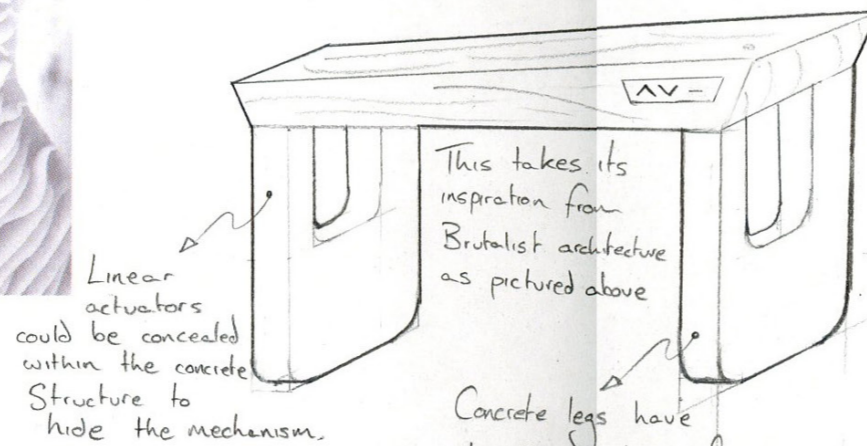 This takes its
inspiration from
Brutalist architecture
as pictured above
Linear
actuators
could be concealed
within the concrete
Structure to
hide the mechanism.
Concrete legs have